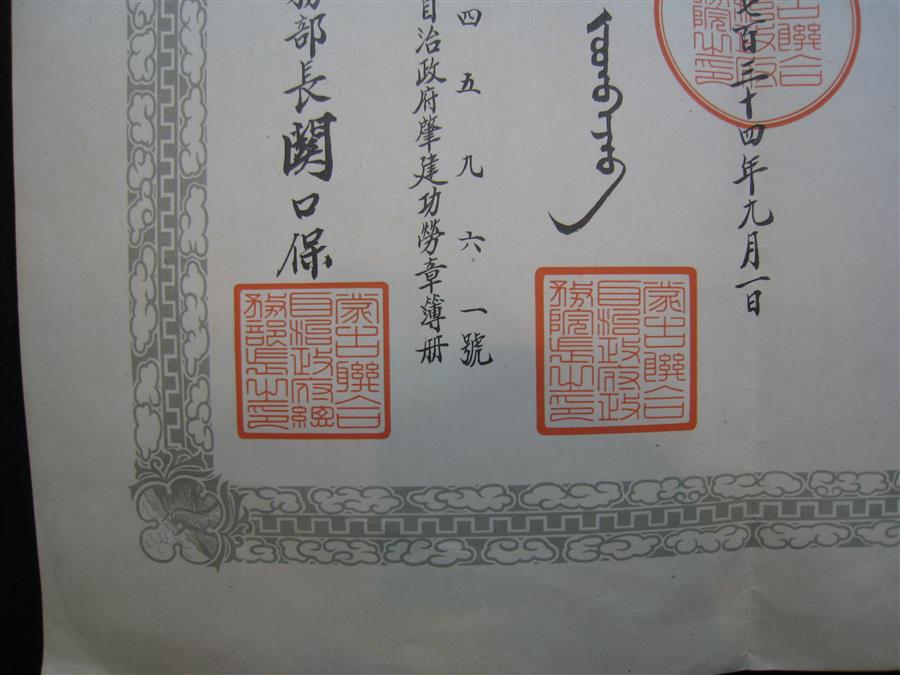 七百三十四年九月一日
蒙古聯合
自治政府政
務院長之印
四五九六一號
自治政府肇建功勞章簿册
務部長關口保
蒙古聯合
自治政府總
務部長之印